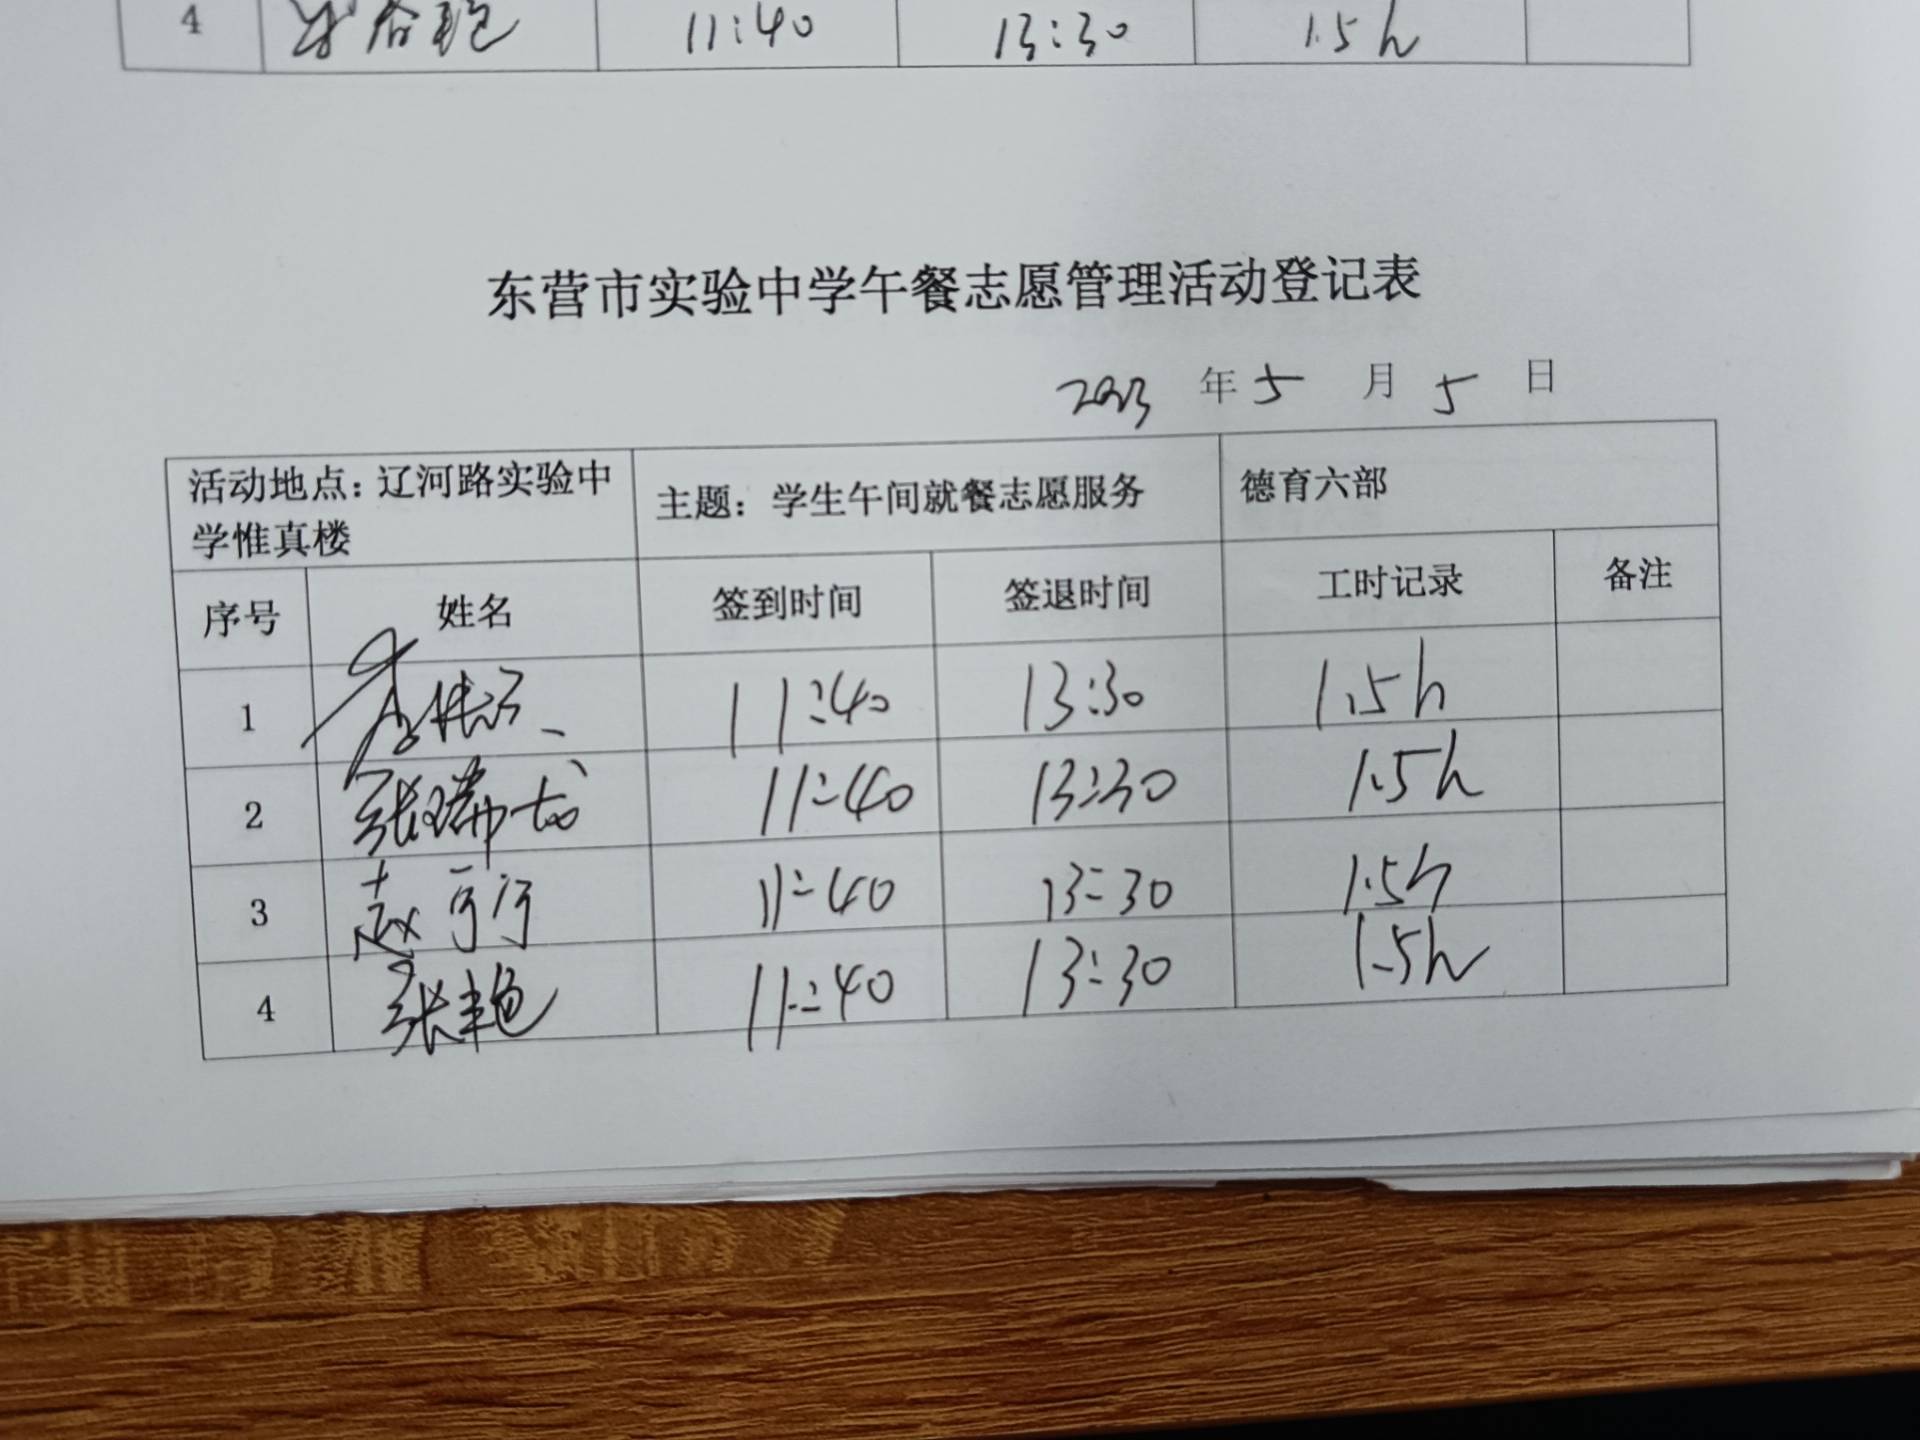 4 11:40 13:30 1.5h
东营市实验中学午餐志愿管理活动登记表
2023 年 5 月 5 日
活动地点：辽河路实验中
学惟真楼
主题：学生午间就餐志愿服务
德育六部
序号 姓名 签到时间 签退时间 工时记录 备注
1 11:40 13:30 1.5h
2 张瑞成 11:40 13:30 1.5h
3 赵 11:40 13:30 1.5h
4 张艳 11:40 13:30 1.5h